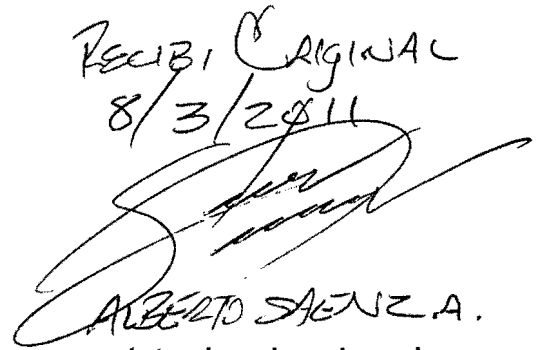 RECIBI ORIGINAL
8/3/2011
ALBERTO SAENZ A.